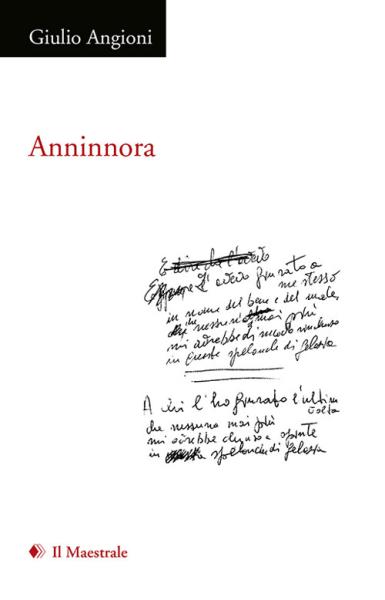 Giulio Angioni
Anninnora
E dire che l'avevo
Eppure l'avevo giurato a
me stesso
in nome del bene e del male,
che nessuno mai più
mi avrebbe di nuovo
in queste spelonche di
A chi l'ho giurato l'ultima
volta
che nessuno mai più
mi avrebbe chiuso a
in spelonche di
Il Maestrale